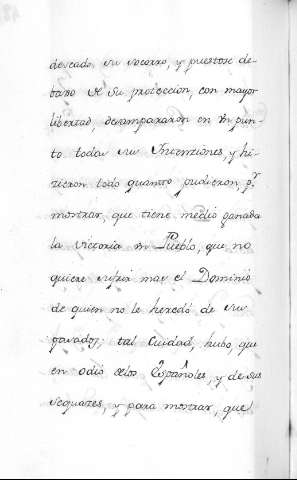 deseado, su socorro, y puestose de-
baxo de su proteccion, con mayor
libertad, desampararon en un pun-
to todas sus Intenciones, y hi-
zieron todo quanto pudieron p.r
mostrar, que tiene medio ganada
la victoria un Pueblo, que no
quiere sufrir mas el Dominio
de quien no le heredó de sus
pasados; tal Ciudad, hubo, que
en odio delos Españoles, y de sus
sequazes, y para mostrar, que